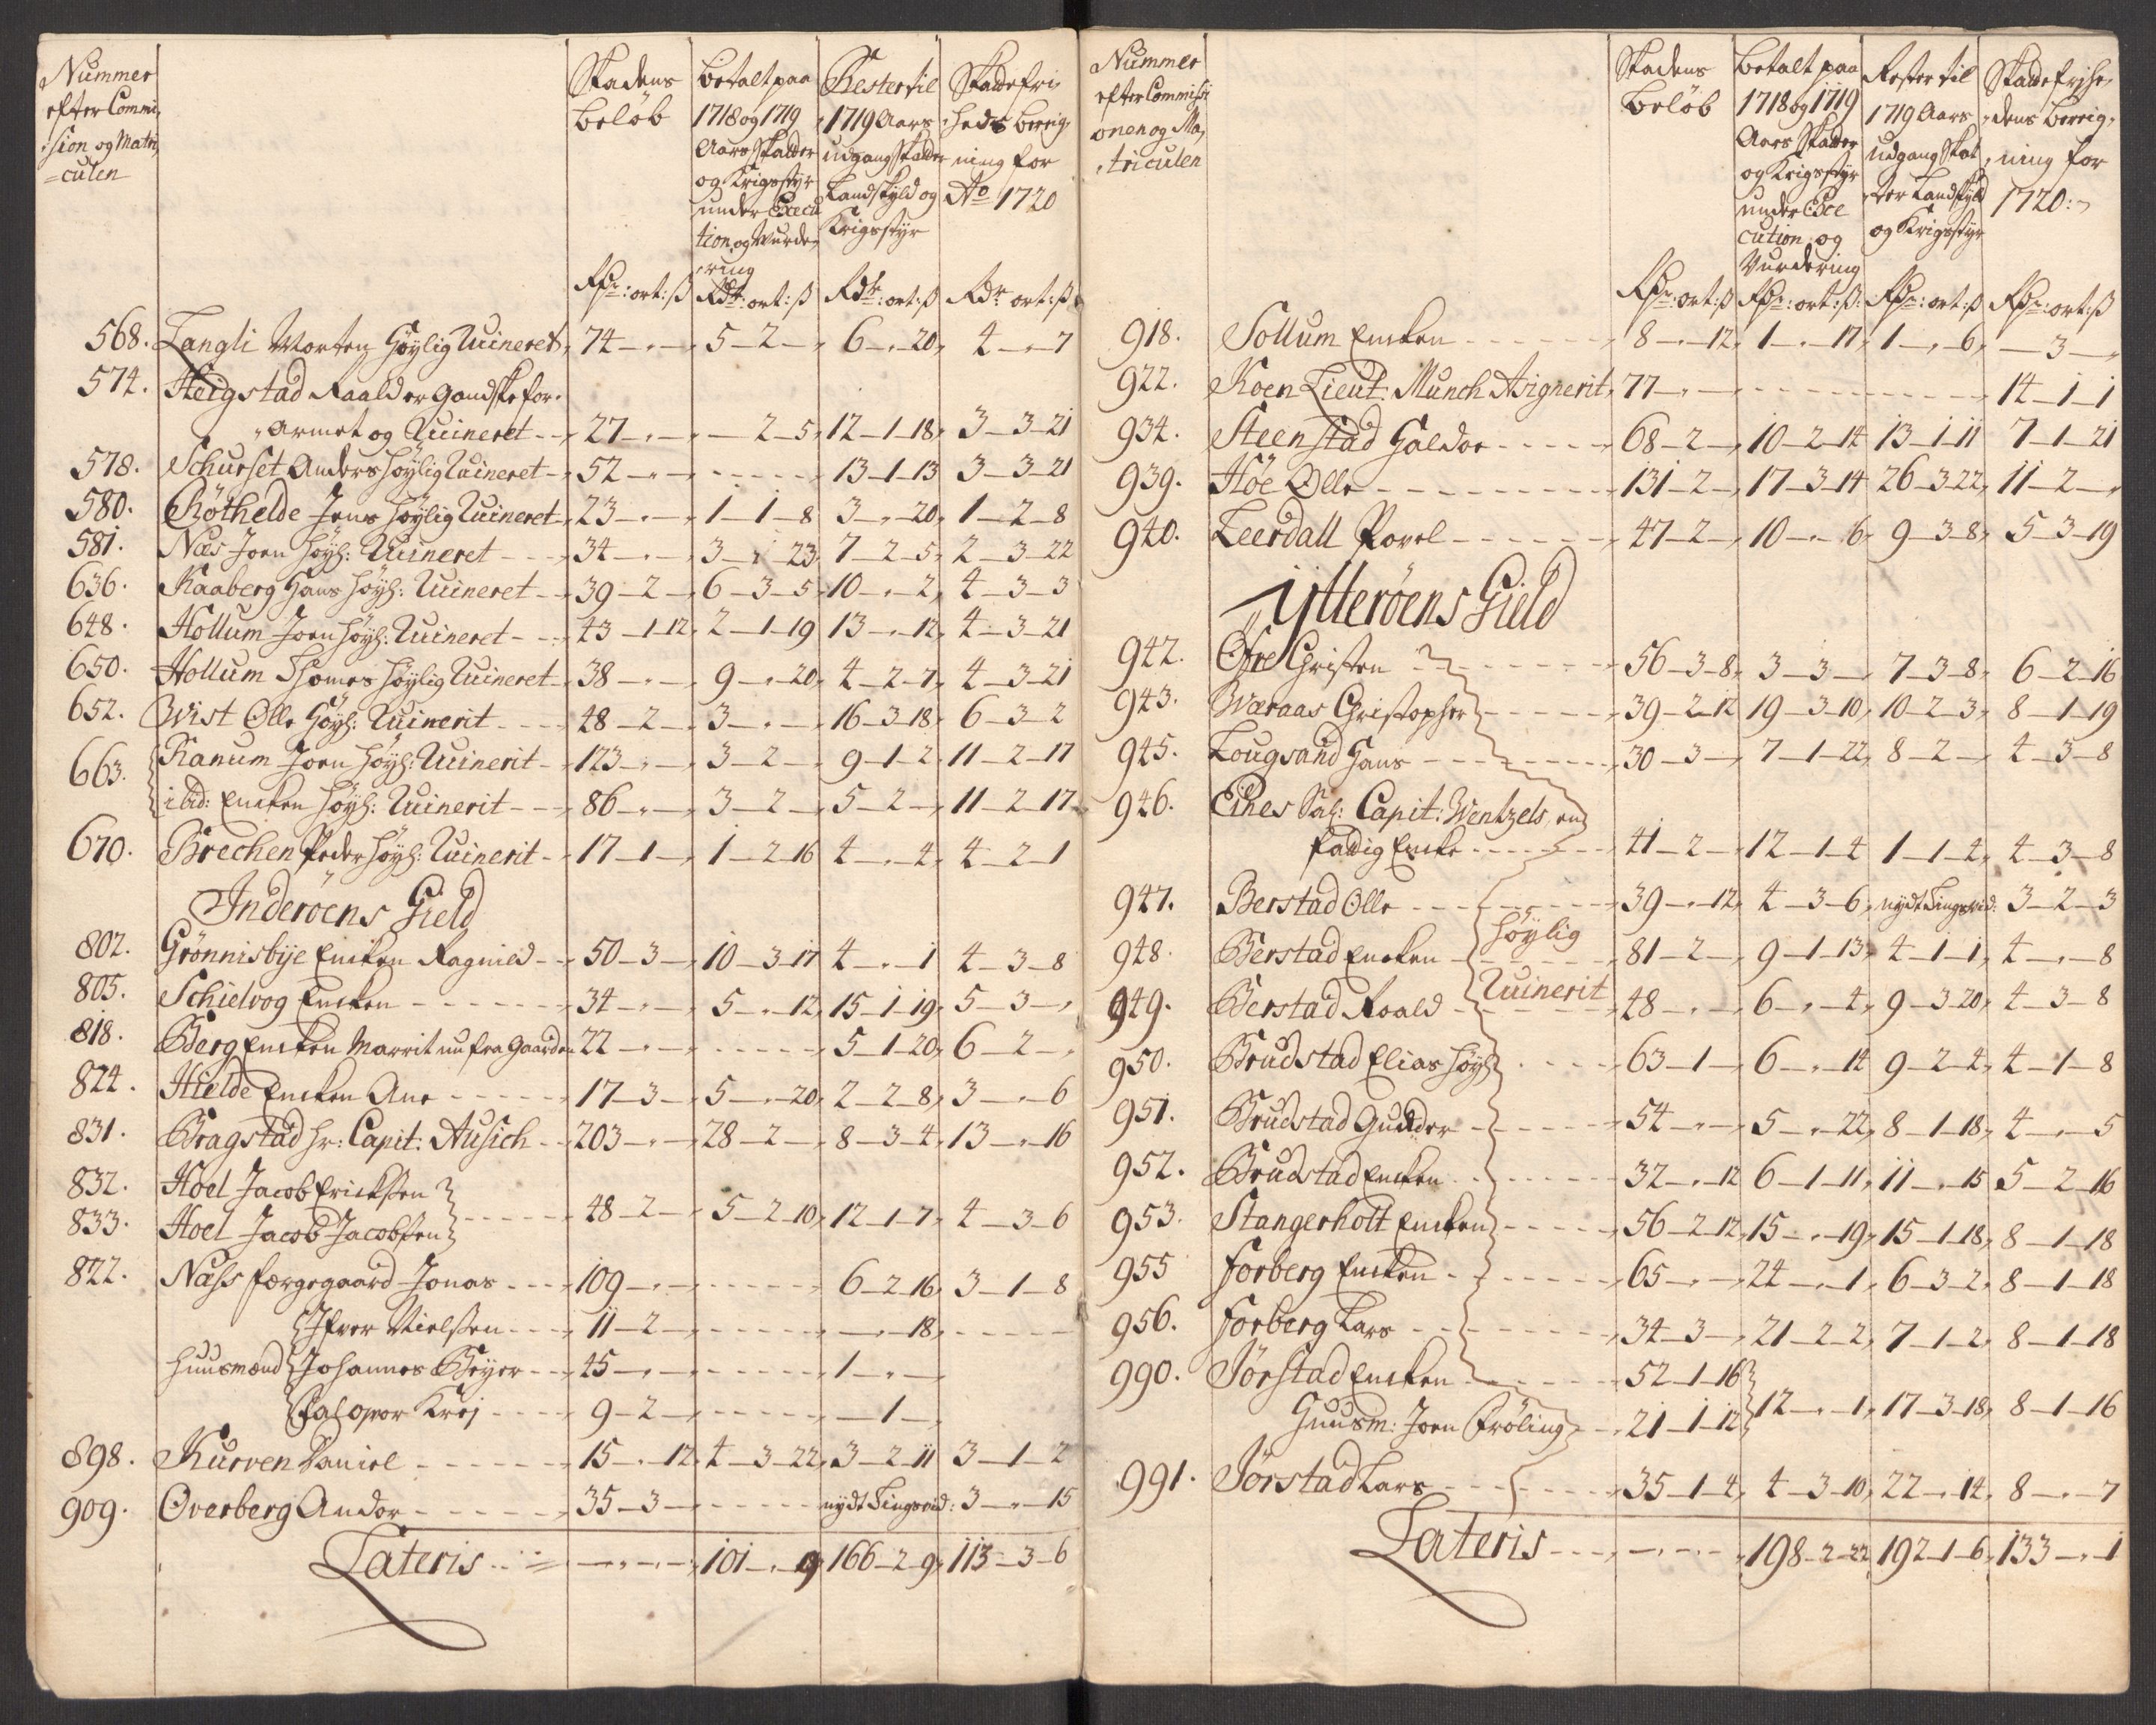 Nummer
efter Commi,
,sion og Matri,
=culen
Skadens
beløb
betalt paa
1718 og 1719
Aars Skatter
og Krigsstyr
under Execu
tion, og Wurde,
,ring
Rester til
1719 Aars
udgang Skatter
Landskyld og
Krigsstyr
Skattefri
,heds berig,
ning for
Ao 1720
Rdr: ort: ß Rdr: ort: ß Rdr: ort: ß Rdr ort: ß
568. Langli Morten Høylig Ruineret, 74 - „ - 5 - 2 - „ 6 - „ 20, 4 - „ - 7
574. Heigstad Raald er gandske for,
„armet og Ruineret - - 27 - „ - „ - 2 - 5, 12 - 1 - 18, 3 - 3 - 21
578. Schurset Anders høylig Ruineret - 52 - „ - - - - - - 13 - 1 - 13 3 - 3 - 21
580. Røthelde Jens høylig Ruineret - 23 - „ - 1 - 1 - 8 3 - „ - 20, 1 - 2 - 8
581. Næs Joen høyl: Ruineret - - - 34 - „ - 3 - 1 - 23, 7 - 2 - 5, 2 - 3 - 22
636. Kaaberg Hans høyl: Ruineret - - 39 - 2 - 6 - 3 - 5 10 - „ - 2, 4 - 3 - 3
648. Hollum Joen høyl: Ruineret - - 43 - 1 - 12, 2 - 1 - 19 13 - „ - 12, 4 - 3 - 21
650. Hollum Thomes høylig Ruineret - 38 - „ - 9 - „ - 20, 4 - 2 - 7, 4 - 3 - 21
652. Wist Olle Høyl: Ruinerit - - - 48 - 2 - 3 - „ - 16 - 3 - 18, 6 - 3 - 2
663. Ranum Joen høyl: Ruinerit - 123 - „ - 3 - 2 - 9 - 1 - 2 11 - 2 - 17
ibid: Encken høyl: Ruinerit - - 86 - „ - 3 - 2 - 5 - 2 - 11 - 2 - 17
670. Brechen Peder høyl: Ruinerit - 17 - 1 - 1 - 2 - 16 4 - „ - 4, 4 - 2 - 1
Inderöens Gield
802. Grønnisbÿe Encken Ragnild - - 50 - 3 - 10 - 3 - 17 4 - „ - 1 4 - 3 - 8
805. Schielvog Encken - - - - - - 34 - „ - 5 - „ - 12, 15 - 1 - 19, 5 - 3 - „
818. Berg Encken Marrit nu fra Gaarden 22 - „ - - - - - - 5 - 1 - 20, 6 - 2 - „
824. Hielde Encken Ane - - - - - 17 - 3 - 5 - „ - 20, 2 - 2 - 8, 3 - „ - 6
831. Bragstad hr: Capit: Ausich - - 203 - „ - 28 - 2 - 8 - 3 - 4, 13 - „ 16
832. Hoel Jacob Erichssen
833. Hoel Jacob Jacobsen - - - - 48 - 2 - 5 - 2 - 10, 12 - 1 - 7, 4 - 3 - 6
822. Næss færgegaard Jonas - - - 109 - „ - - - - - - 6 - 2 - 16, 3 - 1 - 8
Ifver Nielssen - - - 11 - 2 - - - - - - - „ - 18, - - - - -
Huusmænd Johannes Beyer - - 45 - „ - - - - - - 1 - „ -
9 - 2 - - - - - - - 1 - „
898. Kurven Daniel - - - - - - 15 - „ - 12, 4 - 3 - 22, 3 - 2 - 11 3 - 1 - 2
909. Overberg Andor - - - - - - 35 - 3 - - - - - - nydt Tingsvid: 3 - „ - 15
Lateris - - - - - - - 101 - „ 9, 166 - 2 - 9, 113 - 3 - 6
Nummer
efter Commissi
onen og Ma,
,triculen
Skadens
beløb
betalt paa
1718 og 1719
Aars Skatter
og Krigsstyr
under Exe
cution og
Vurdering
Rester til
1719 Aars
udgang Skat
,ter Landskyld
og Krigsstyr
Skattefrihe,
,dens berig,
,ning for
1720:
Rdr: ort: ß Rdr: ort: ß: Rdr: ort: ß Rdr: ort: ß
918. Sollum Encken - - - - - - 8 - „ - 12, 1 - „ - 17, 1 - „ - 6, - 3 - „
922. Koen Lieut: Munch Asignerit, 77 - „ - - - - - - - - - - 14 - 1 - 1
934. Steenstad Haldor - - - - - 68 - 2 - 10 - 2 - 14 13 - 1 - 11 7 - 1 - 21
939. Høe Olle - - - - - - - - 131 - 2 - 17 - 3 - 14 26 - 3 - 22, 11 - 2 - „
940. Leerdall Povel - - - - - - 47 - 2 - 10 - „ - 6, 9 - 3 - 8, 5 - 3 - 19
Ytteröens Gield
942. Ofre Christen - - - - - - 56 - 3 - 8, 3 - 3 - 7 - 3 - 8, 6 - 2 - 16
943. Wæraas Christopher - - - - - 39 - 2 - 12 19 - 3 - 10, 10 - 2 - 3, 8 - 1 - 19
945. Lougsand Hans - - - - - - 30 - 3 - 7 - 1 - 22, 8 - 2 - 4 - 3 - 8
946. Eines Sal: Capit: Wentzels, en
fattig Encke - - - - - 41 - 2 - 12 - 1 - 4 1 - 1 - 4, 4 - 3 - 8
947. Berstad Olle - - - - - - 39 - „ - 12, 4 - 3 - 6, nydt Tingsvid: 3 - 2 - 3
Høylig
948. Berstad Encken - - - - 81 - 2 - 9 - 1 - 13, 4 - 1 - 1, 4 - „ - 8
Ruinerit
949. Berstad Roald - - - - - 48 - „ - 6 - „ - 4, 9 - 3 - 20, 4 - 3 - 8
950. Brudstad Elias høyl - - - - 63 - 1 - 6 - „ - 14 9 - 2 - 4, 4 - 1 - 8
951. Brudstad Gunder - - - - - 54 - „ - 5 - „ - 22, 8 - 1 - 18, 4 - „ - 5
952. Brudstad Encken - - - - - 32 - „ - 12 6 - 1 - 11, 11 - „ - 15 5 - 2 - 16
953. Stangerholt Encken - - - - 56 - 2 - 12, 15 - „ - 19, 15 - 1 - 18, 8 - 1 - 18
955 Forberg Encken - - - - - - 65 - „ - 24 - „ - 1, 6 - 3 - 2, 8 - 1 - 18
956. Forberg Lars - - - - - - 34 - 3 - 21 - 2 - 2, 7 - 1 - 2, 8 - 1 - 18
990. Jørstad Encken - - - - - 52 - 1 - 16
Huusm: Joen Frøling - - 21 - 1 - 12 12 - „ - 1, 17 - 3 - 18, 8 - 1 - 16
991. Jørstad Lars - - - - - - 35 - 1 - 4, 4 - 3 - 10, 22 - „ 14, 8 - „ - 7
Lateris - - - - - - - 198 - 2 - 22, 192 - 1 - 6, 133 - „ - 1